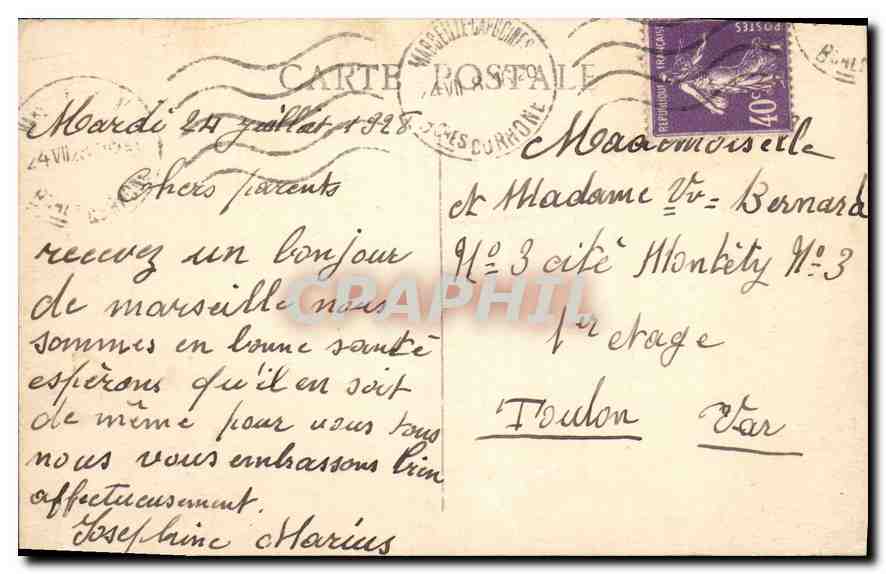 CARTE POSTALE
MARSEILLE-CAPUCINES
BCHES DU RHONE
24 VII
REPUBLIQUE FRANÇAISE
POSTES
40c
Mardi 24 juillet 1928
Cohers parents
recevez un bonjour
de marseille nous
sommes en bonne santé
espèrons qu'il en soit
de même pour vous tous
nous vous embrassons bien
affectueusement.
Josephine Marius
Mademoiselle
et Madame Vve Bernard
No 3 cité Montéty No 3
1er etage
Toulon Var
CPAPHIL